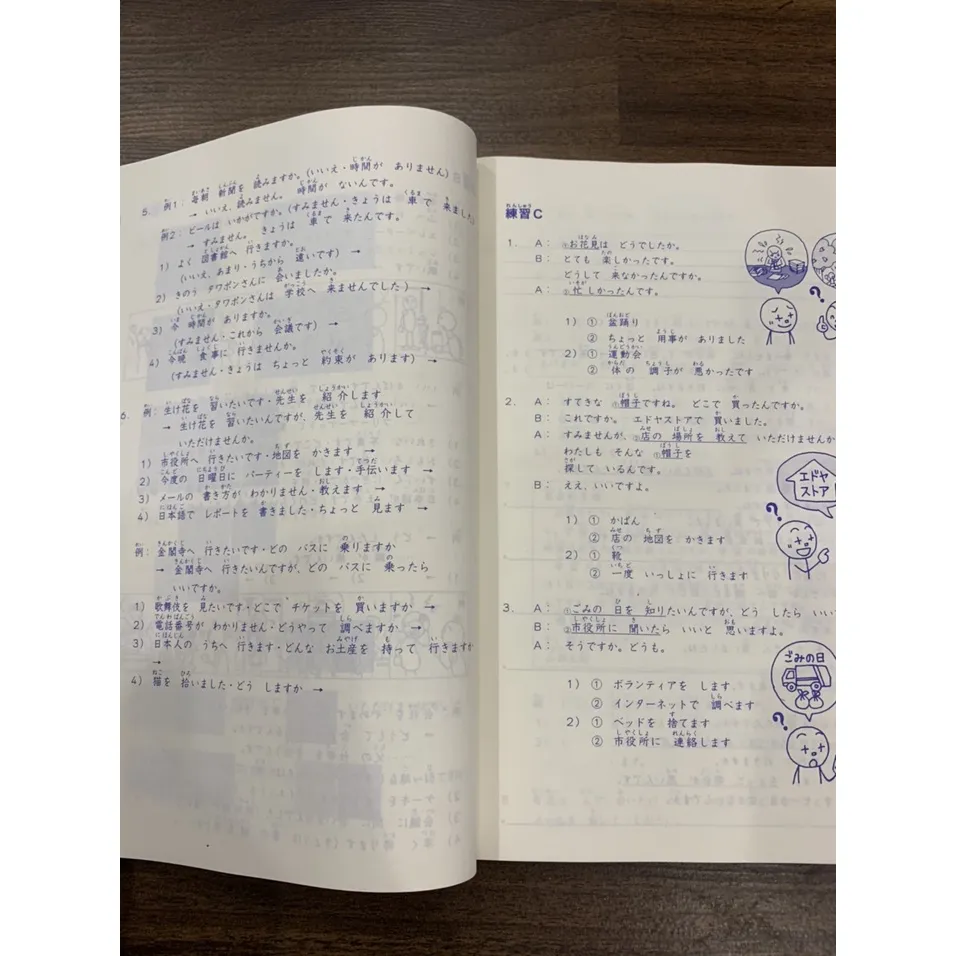 5. 例1：毎朝 新聞を 読みますか。(いいえ・時間が ありません)
→ いいえ、読みません。 時間が ないんです。
例2：ビールは いかがですか。(すみません・きょうは 車で 来ました
→ すみません。 きょうは 車で 来たんです。
1) よく 図書館へ 行きますか。
(いいえ、あまり・うちから 遠いです) →
2) きのう タワポンさんに 会いましたか。
(いいえ・タワポンさんは 学校へ 来ませんでした) →
3) 今 時間が ありますか。
(すみません・これから 会議です) →
4) 今晩 食事に 行きませんか。
(すみません・きょうは ちょっと 約束が あります) →
6. 例：生け花を 習いたいです・先生を 紹介します
→ 生け花を 習いたいんですが、先生を 紹介して
いただけませんか。
1) 市役所へ 行きたいです・地図を かきます →
2) 今度の 日曜日に パーティーを します・手伝います →
3) メールの 書き方が わかりません・教えます →
4) 日本語で レポートを 書きました・ちょっと 見ます →
例：金閣寺へ 行きたいです・どの バスに 乗りますか
→ 金閣寺へ 行きたいんですが、どの バスに 乗ったら
いいですか。
1) 歌舞伎を 見たいです・どこで チケットを 買いますか →
2) 電話番号が わかりません・どうやって 調べますか →
3) 日本人の うちへ 行きます・どんな お土産を 持って 行きますか
→
4) 猫を 拾いました・どう しますか →
練習C
1. A：①お花見は どうでしたか。
B：とても 楽しかったです。
どうして 来なかったんですか。
A：②忙しかったんです。
1) ① 盆踊り
② ちょっと 用事が ありました
2) ① 運動会
② 体の 調子が 悪かったです
2. A：すてきな ①帽子ですね。 どこで 買ったんですか。
B：これですか。 エドヤストアで 買いました。
A：すみませんが、②店の 場所を 教えて いただけませんか
わたしも そんな ①帽子を
探して いるんです。
B：ええ、いいですよ。
エドヤ
ストア
1) ① かばん
② 店の 地図を かきます
2) ① 靴
② 一度 いっしょに 行きます
3. A：①ごみの 日を 知りたいんですが、どう したら いい
B：②市役所に 聞いたら いいと 思いますよ。
A：そうですか。どうも。
ごみの日
1) ① ボランティアを します
② インターネットで 調べます
2) ① ベッドを 捨てます
② 市役所に 連絡します